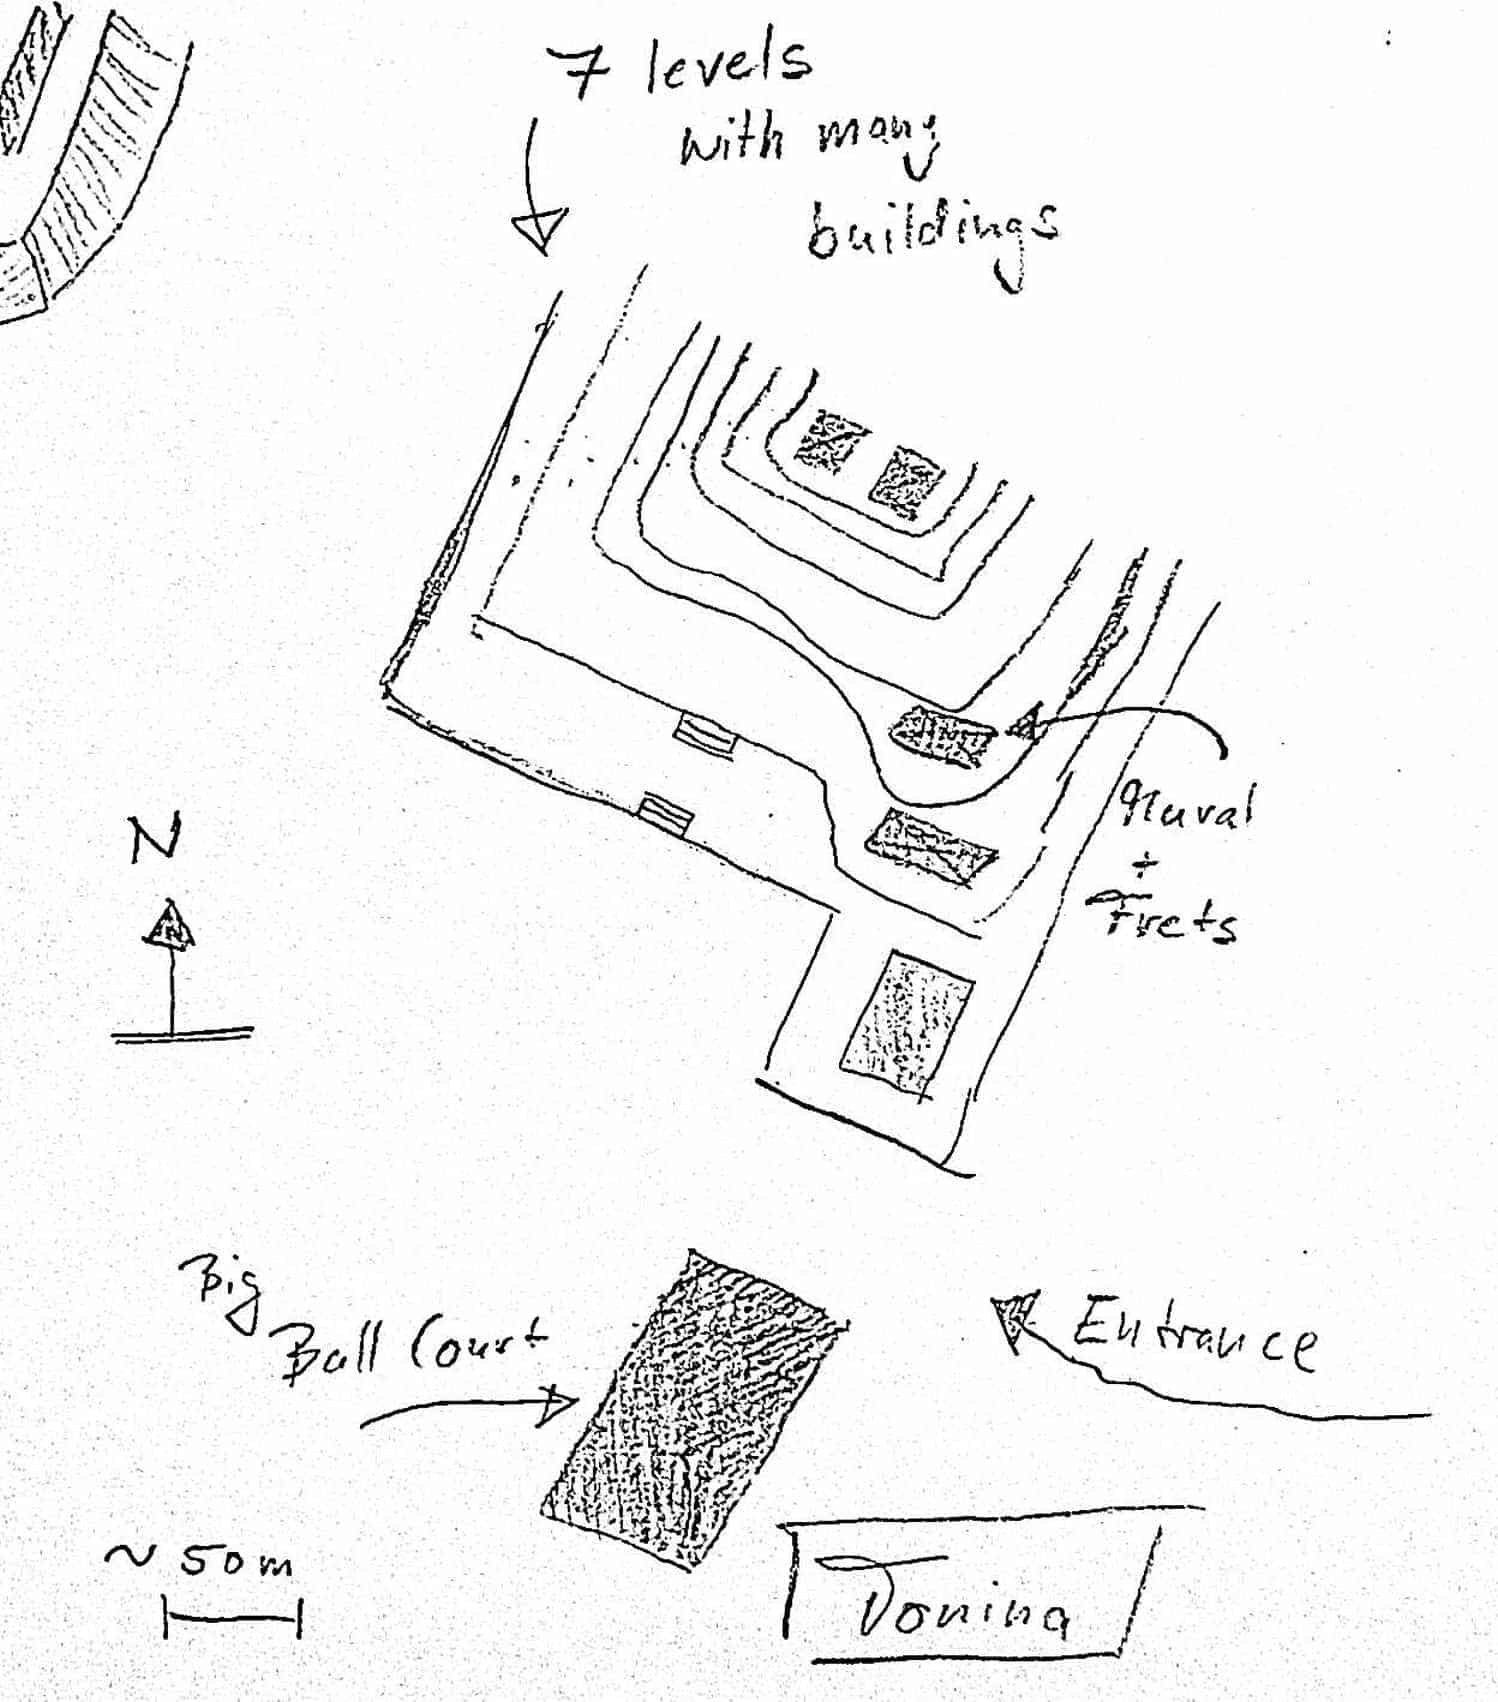 7 levels
with many
buildings
Mural
+
Frets
N
Big
Ball Court
Entrance
~ 50 m
Tonina